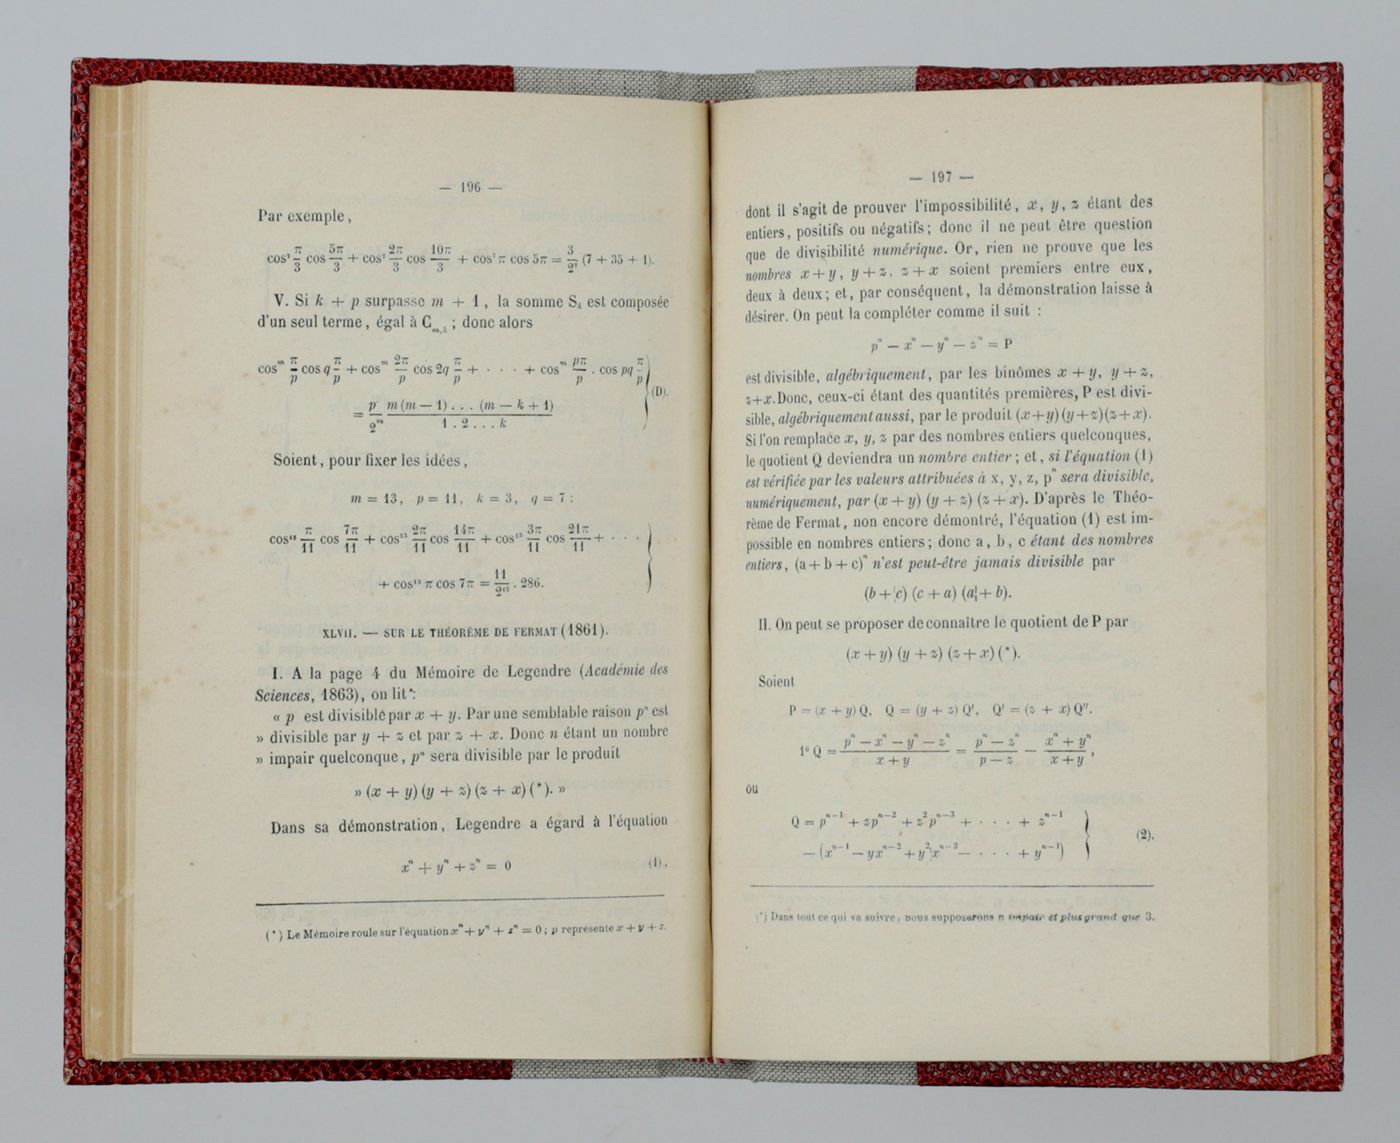 — 196 —
Par exemple,
cos⁷ π/3 cos 5π/3 + cos⁷ 2π/3 cos 10π/3 + cos⁷ π cos 5π = 3/2⁷ (7 + 35 + 1).
V. Si k + p surpasse m + 1, la somme Sₖ est composée
d'un seul terme, égal à Cₘ,ₖ; donc alors
cosᵐ π/p cos q π/p + cosᵐ 2π/p cos 2q π/p + · · · + cosᵐ pπ/p . cos pq π/p
= p/2ᵐ m(m — 1) . . . (m — k + 1)/1 . 2 . . . k (D).
Soient, pour fixer les idées,
m = 13, p = 11, k = 3, q = 7 :
cos¹³ π/11 cos 7π/11 + cos¹³ 2π/11 cos 14π/11 + cos¹³ 3π/11 cos 21π/11 + · · ·
+ cos¹³ π cos 7π = 11/2¹³ . 286.
XLVII. — SUR LE THÉORÈME DE FERMAT (1861).
I. A la page 4 du Mémoire de Legendre (Académie des
Sciences, 1863), on lit :
« p est divisible par x + y. Par une semblable raison pⁿ est
» divisible par y + z et par z + x. Donc n étant un nombre
» impair quelconque, pⁿ sera divisible par le produit
» (x + y) (y + z) (z + x) (*). »
Dans sa démonstration, Legendre a égard à l'équation
xⁿ + yⁿ + zⁿ = 0 (1).
(*) Le Mémoire roule sur l'équation xⁿ + yⁿ + zⁿ = 0; p représente x + y + z.
— 197 —
dont il s'agit de prouver l'impossibilité, x, y, z étant des
entiers, positifs ou négatifs; donc il ne peut être question
que de divisibilité numérique. Or, rien ne prouve que les
nombres x + y, y + z, z + x soient premiers entre eux,
deux à deux; et, par conséquent, la démonstration laisse à
désirer. On peut la compléter comme il suit :
pⁿ — xⁿ — yⁿ — zⁿ = P
est divisible, algébriquement, par les binômes x + y, y + z,
z+x. Donc, ceux-ci étant des quantités premières, P est divi-
sible, algébriquement aussi, par le produit (x+y)(y+z)(z+x).
Si l'on remplace x, y, z par des nombres entiers quelconques,
le quotient Q deviendra un nombre entier; et, si l'équation (1)
est vérifiée par les valeurs attribuées à x, y, z, pⁿ sera divisible,
numériquement, par (x + y) (y + z) (z + x). D'après le Théo-
rème de Fermat, non encore démontré, l'équation (1) est im-
possible en nombres entiers; donc a, b, c étant des nombres
entiers, (a + b + c)ⁿ n'est peut-être jamais divisible par
(b + c) (c + a) (a + b).
II. On peut se proposer de connaître le quotient de P par
(x + y) (y + z) (z + x) (*).
Soient
P = (x + y) Q, Q = (y + z) Q', Q' = (z + x) Q".
1° Q = pⁿ — xⁿ — yⁿ — zⁿ/x + y = pⁿ — zⁿ/p — z — xⁿ + yⁿ/x + y,
ou
Q = pⁿ⁻¹ + zpⁿ⁻² + z²pⁿ⁻³ + · · · + zⁿ⁻¹
— (xⁿ⁻¹ — yxⁿ⁻² + y²xⁿ⁻³ — · · · + yⁿ⁻¹) (2).
(*) Dans tout ce qui va suivre, nous supposerons n impair et plus grand que 3.